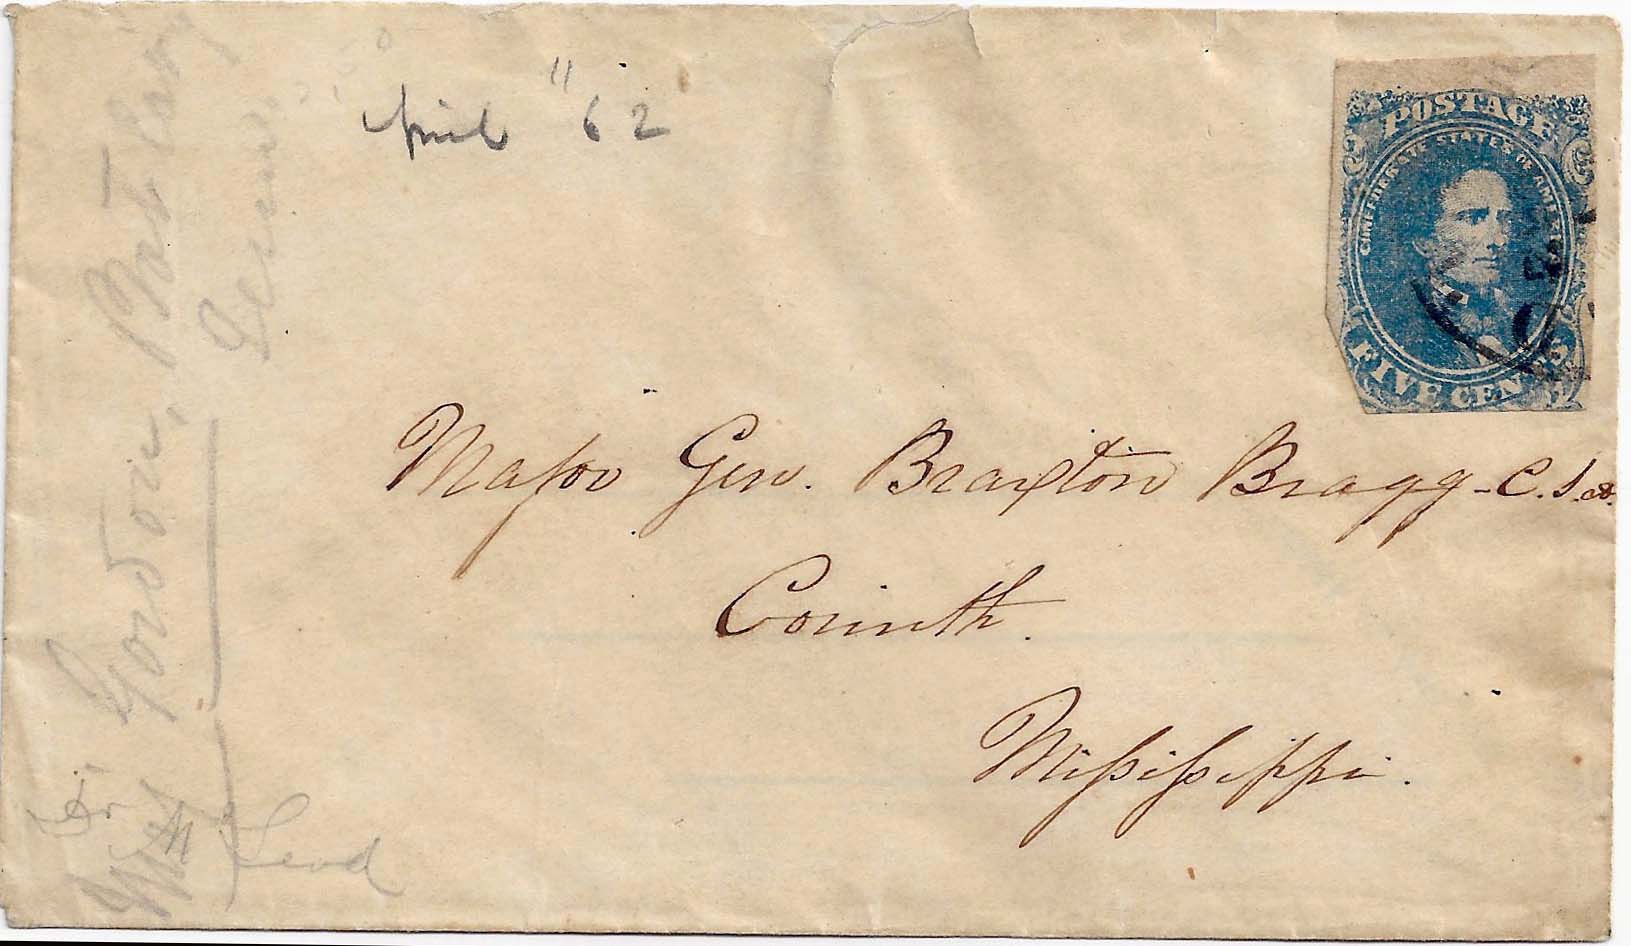 April " 62
POSTAGE
CONFEDERATE STATES OF AMERICA
FIVE CENTS
Major Gen. Braxton Bragg - C. S. A.
Corinth.
Mississippi.
Gordon,